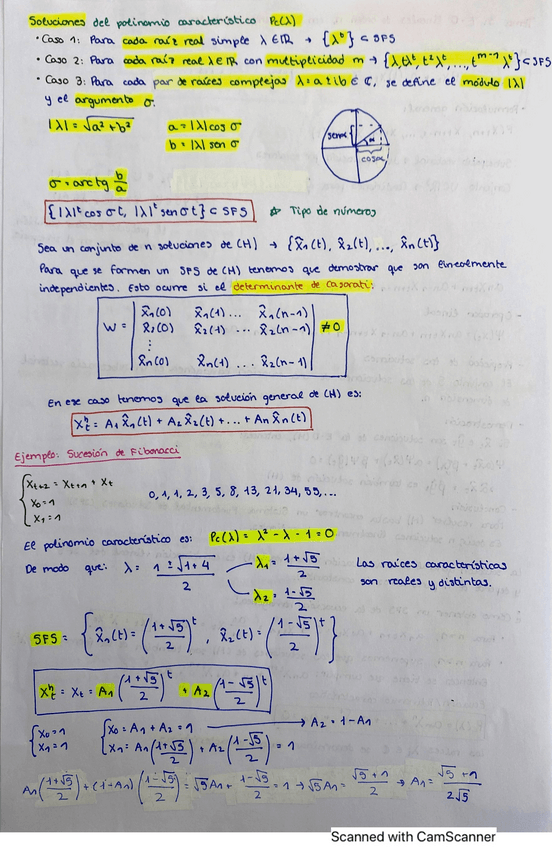 Soluciones del polinomio característico Pc(λ)
• Caso 1: Para cada raíz real simple λ ∈ IR → {λᵗ} ⊂ SFS
• Caso 2: Para cada raíz real λ ∈ IR con multiplicidad m → {λᵗ, tλᵗ, t²λᵗ, ..., tᵐ⁻¹λᵗ} ⊂ SFS
• Caso 3: Para cada par de raíces complejas λ = a ± ib ∈ ℂ, se define el módulo |λ|
y el argumento σ.
|λ| = √a² + b² a = |λ| cos σ
b = |λ| sen σ
senα α
cosα
σ = arctg b/a
{|λ|ᵗ cos σt, |λ|ᵗ sen σt} ⊂ SFS ☆ Tipo de números
Sea un conjunto de n soluciones de (H) → {x̂₁(t), x̂₂(t), ..., x̂n(t)}
Para que se formen un SFS de (H) tenemos que demostrar que son linealmente
independientes. Esto ocurre si el determinante de Casorati:
W = | x̂₁(0) x̂₁(1) ... x̂₁(n-1) |
| x̂₂(0) x̂₂(1) ... x̂₂(n-1) | ≠ 0
⋮
| x̂n(0) x̂n(1) ... x̂n(n-1) |
En ese caso tenemos que la solución general de (H) es:
Xₜʰ = A₁ x̂₁(t) + A₂ x̂₂(t) + ... + An x̂n(t)
Ejemplo: Sucesión de Fibonacci
{ Xt+2 = Xt+1 + Xt
X₀ = 1 0, 1, 1, 2, 3, 5, 8, 13, 21, 34, 55, ...
X₁ = 1
El polinomio característico es: Pc(λ) = λ² - λ - 1 = 0
De modo que: λ = (1 ± √1+4)/2 λ₁ = (1+√5)/2 Las raíces características
λ₂ = (1-√5)/2 son reales y distintas.
SFS = { x̂₁(t) = ((1+√5)/2)ᵗ, x̂₂(t) = ((1-√5)/2)ᵗ }
Xₜʰ = Xt = A₁ ((1+√5)/2)ᵗ + A₂ ((1-√5)/2)ᵗ
{ X₀ = 1 { X₀ = A₁ + A₂ = 1 → A₂ = 1 - A₁
X₁ = 1 X₁ = A₁((1+√5)/2) + A₂((1-√5)/2) = 1
A₁((1+√5)/2) + (1-A₁)((1-√5)/2) = √5A₁ + (1-√5)/2 = 1 → √5A₁ = (√5+1)/2 → A₁ = (√5+1)/2√5
Scanned with CamScanner